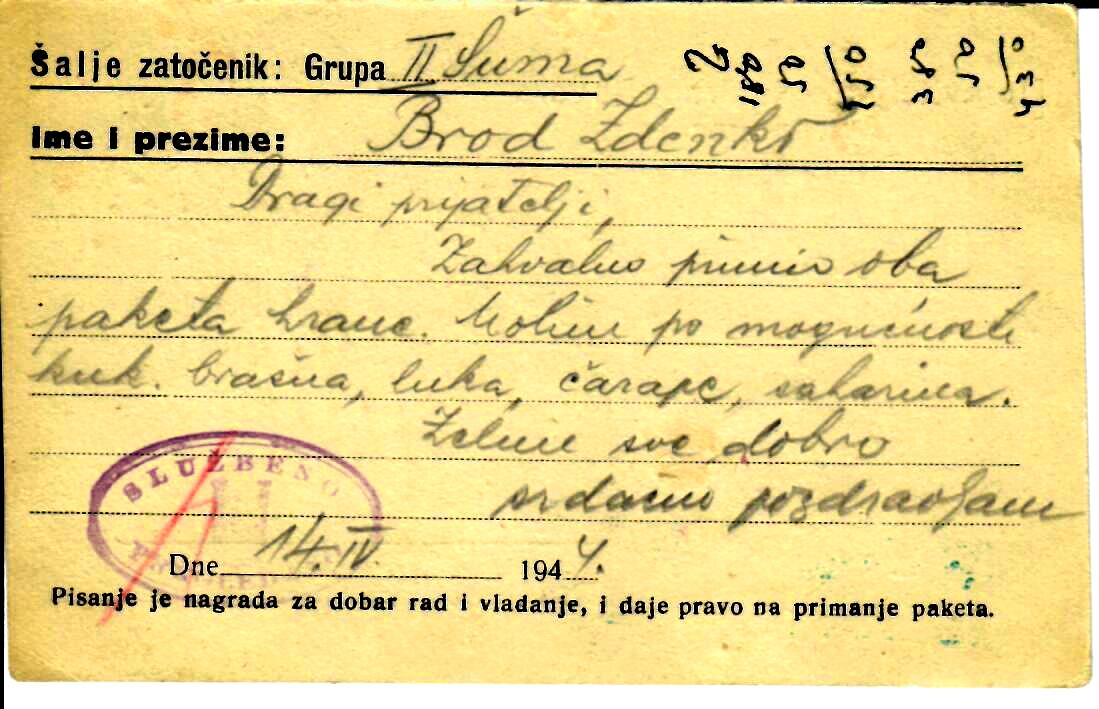 Šalje zatočenik: Grupa II Šuma
Ime i prezime: Brod Zdenko
Dragi prijatelji,
Zahvalno primio oba
paketa hrane. Molim po mogućnosti
kuk. brašna, luka, čarape, saharina.
Želim sve dobro
srdačno pozdravljam
SLUŽBENO
Dne 14.IV. 1944.
Pisanje je nagrada za dobar rad i vladanje, i daje pravo na primanje paketa.